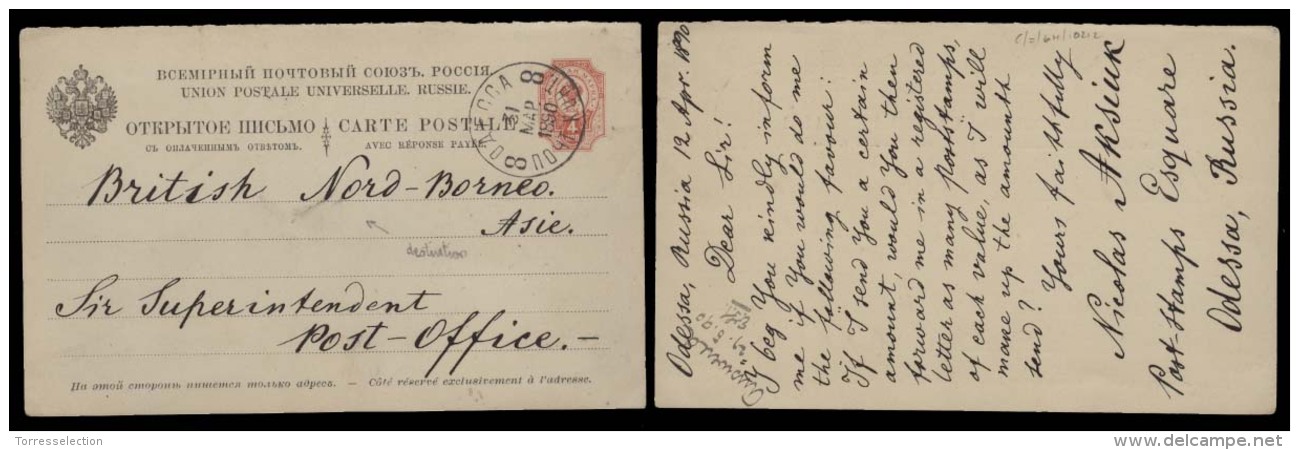 ВСЕМІРНЫЙ ПОЧТОВЫЙ СОЮЗЪ. РОССІЯ.
UNION POSTALE UNIVERSELLE. RUSSIE.
ОТКРЫТОЕ ПИСЬМО
СЪ ОПЛАЧЕННЫМЪ ОТВѢТОМЪ.
CARTE POSTALE
AVEC RÉPONSE PAYÉE.
ОДЕССА
31
МАР
1890
8
8
4
British Nord-Borneo.
Asie.
destination
Sir Superintendent
Post-Office.-
На этой сторонѣ пишется только адресъ. — Côté réservé exclusivement à l'adresse.
Odessa, Russia 12 Apr. 1890
Dear Sir!
I beg You kindly inform
me if You would do me
the following favour:
If I send You a certain
amount, would You then
forward me in a registered
letter as many poststamps,
of each value, as I will
mane up the amounth
send?
Yours faithfully
Nicolas Aksiuk
Post-Stamps Esquare
Odessa, Russia.
Torresselection
delcampe.net